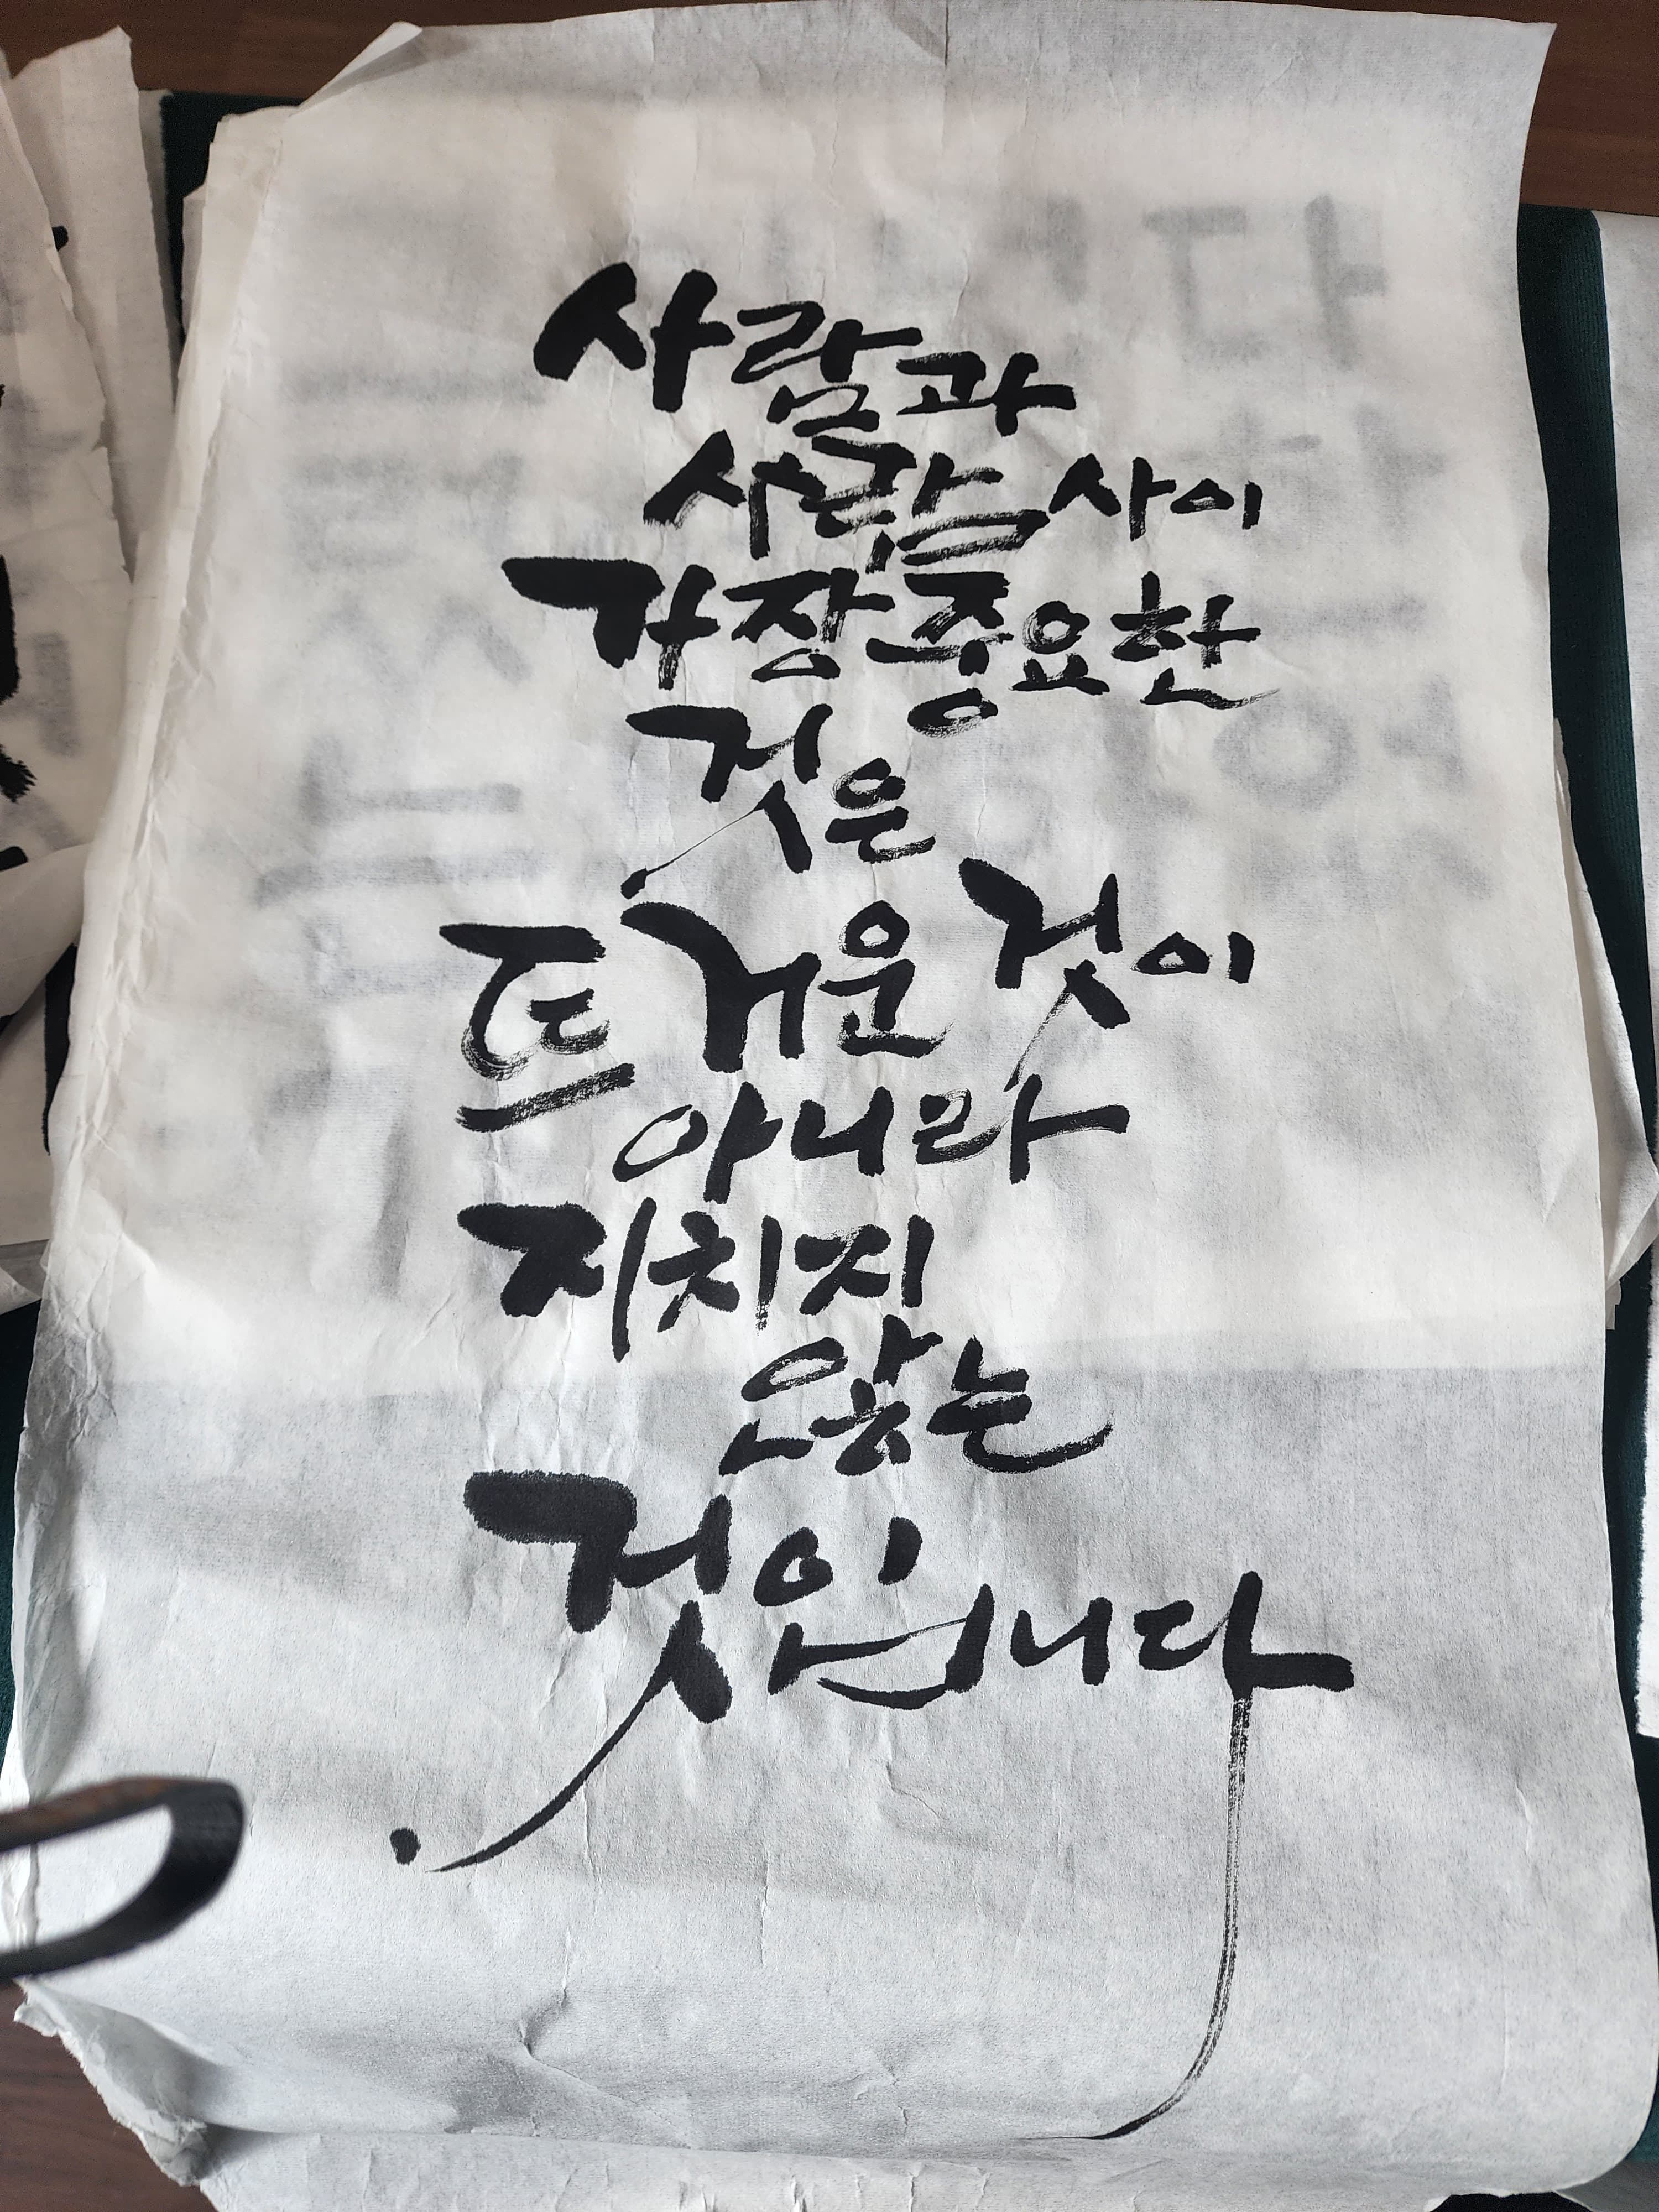 사람과
사람 사이
가장 중요한
것은
뜨거운 것이
아니라
지치지
않는
것입니다